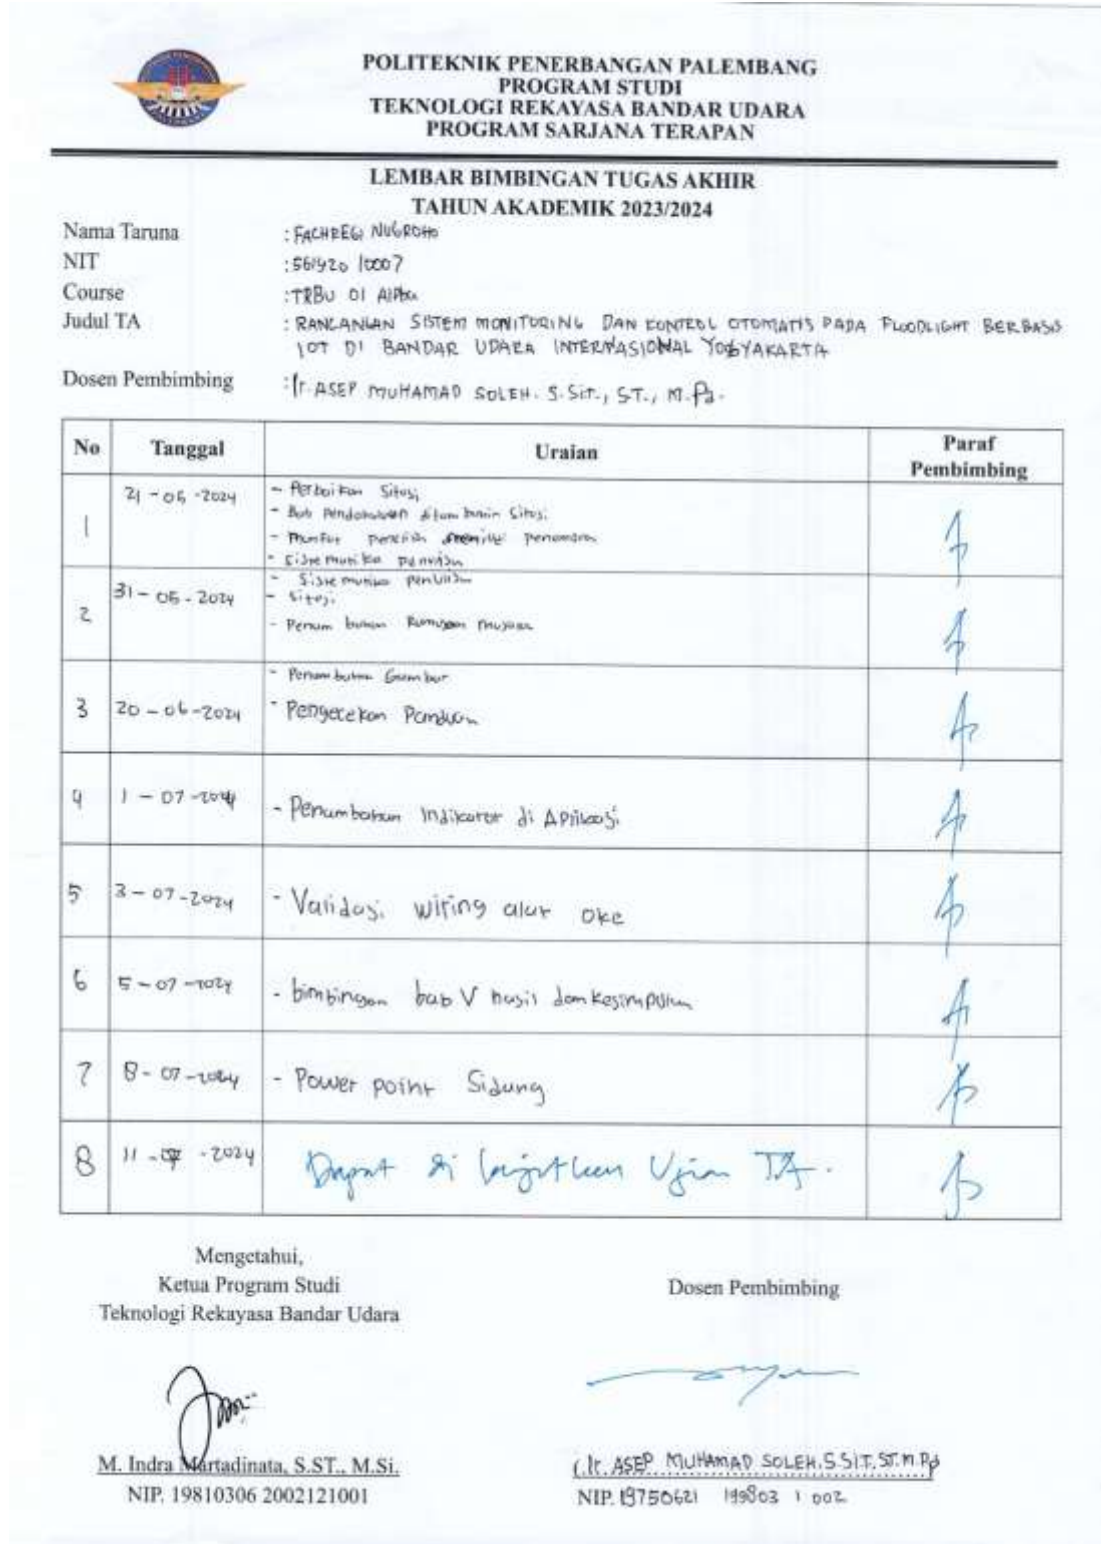 POLITEKNIK PENERBANGAN PALEMBANG
PROGRAM STUDI
TEKNOLOGI REKAYASA BANDAR UDARA
PROGRAM SARJANA TERAPAN
LEMBAR BIMBINGAN TUGAS AKHIR
TAHUN AKADEMIK 2023/2024
Nama Taruna : FACHREGI NUGROHO
NIT : 5619201 0007
Course : TRBU 01 Alpha
Judul TA : RANCANGAN SISTEM MONITORING DAN KONTROL OTOMATIS PADA FLOODLIGHT BERBASIS
IOT DI BANDAR UDARA INTERNASIONAL YOGYAKARTA
Dosen Pembimbing : Ir. ASEP MUHAMAD SOLEH. S.SiT., ST., M.Pd.
No Tanggal Uraian Paraf
Pembimbing
1 21-05-2024 - Perbaikan Sitasi
- Bab Pendahuluan Sitasi
- Manfaat
- Sistematika penulisan
2 31-05-2024 - Sistematika penulisan
- Sitasi
- Penambahan Rumusan masalah
3 20-06-2024 - Penambahan Gambar
- Pengecekan Panduan
4 1-07-2024 - Penambahan Indikator di Aplikasi
5 3-07-2024 - Validasi wiring alur oke
6 5-07-2024 - bimbingan bab V hasil dan kesimpulan
7 8-07-2024 - Power point Sidang
8 11-07-2024 Dapat di lanjutkan Ujian TA.
Mengetahui,
Ketua Program Studi
Teknologi Rekayasa Bandar Udara
Dosen Pembimbing
M. Indra Martadinata, S.ST., M.Si.
NIP. 19810306 2002121001
(.Ir. ASEP MUHAMAD SOLEH.S.SIT,ST.M.Pd
NIP. 19750621 199803 1 002